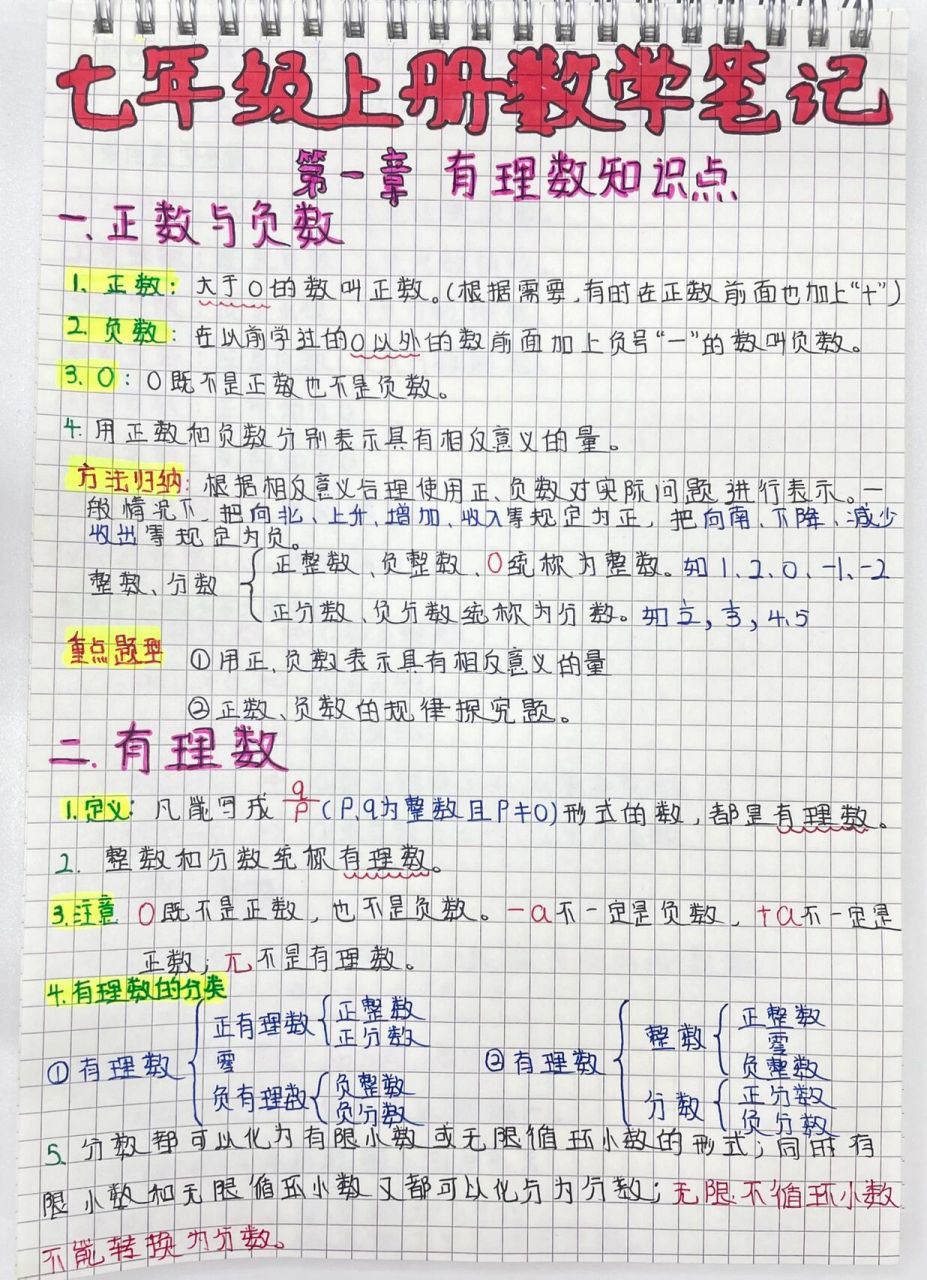 七年级上册数学笔记
第一章 有理数知识点
一.正数与负数
1. 正数：大于0的数叫正数。(根据需要,有时在正数前面也加上“+”)
2. 负数：在以前学过的0以外的数前面加上负号“一”的数叫负数。
3. 0：0既不是正数也不是负数。
4. 用正数和负数分别表示具有相反意义的量。
方法归纳：根据相反意义合理使用正、负数对实际问题进行表示。一
般情况下,把向北、上升、增加、收入等规定为正，把向南、下降、减少
等规定为负。
整数、分数 { 正整数、负整数、0统称为整数。如 1、2、0、-1、-2
正分数、负分数统称为分数。如 1/2, 1/3, 4.5
重点题型 ①用正、负数表示具有相反意义的量
②正数、负数的规律探究题。
二.有理数
1.定义：凡能写成 q/p (P,q为整数且P≠0)形式的数，都是有理数。
2. 整数和分数统称有理数。
3.注意 0既不是正数，也不是负数。-a不一定是负数，+a不一定是
正数；兀不是有理数。
4.有理数的分类
①有理数 { 正有理数 { 正整数
正分数
零
负有理数 { 负整数
负分数
②有理数 { 整数 { 正整数
零
负整数
分数 { 正分数
负分数
5. 分数都可以化为有限小数或无限循环小数的形式；同时有
限小数和无限循环小数又都可以化为分数；无限不循环小数
不能转换为分数。